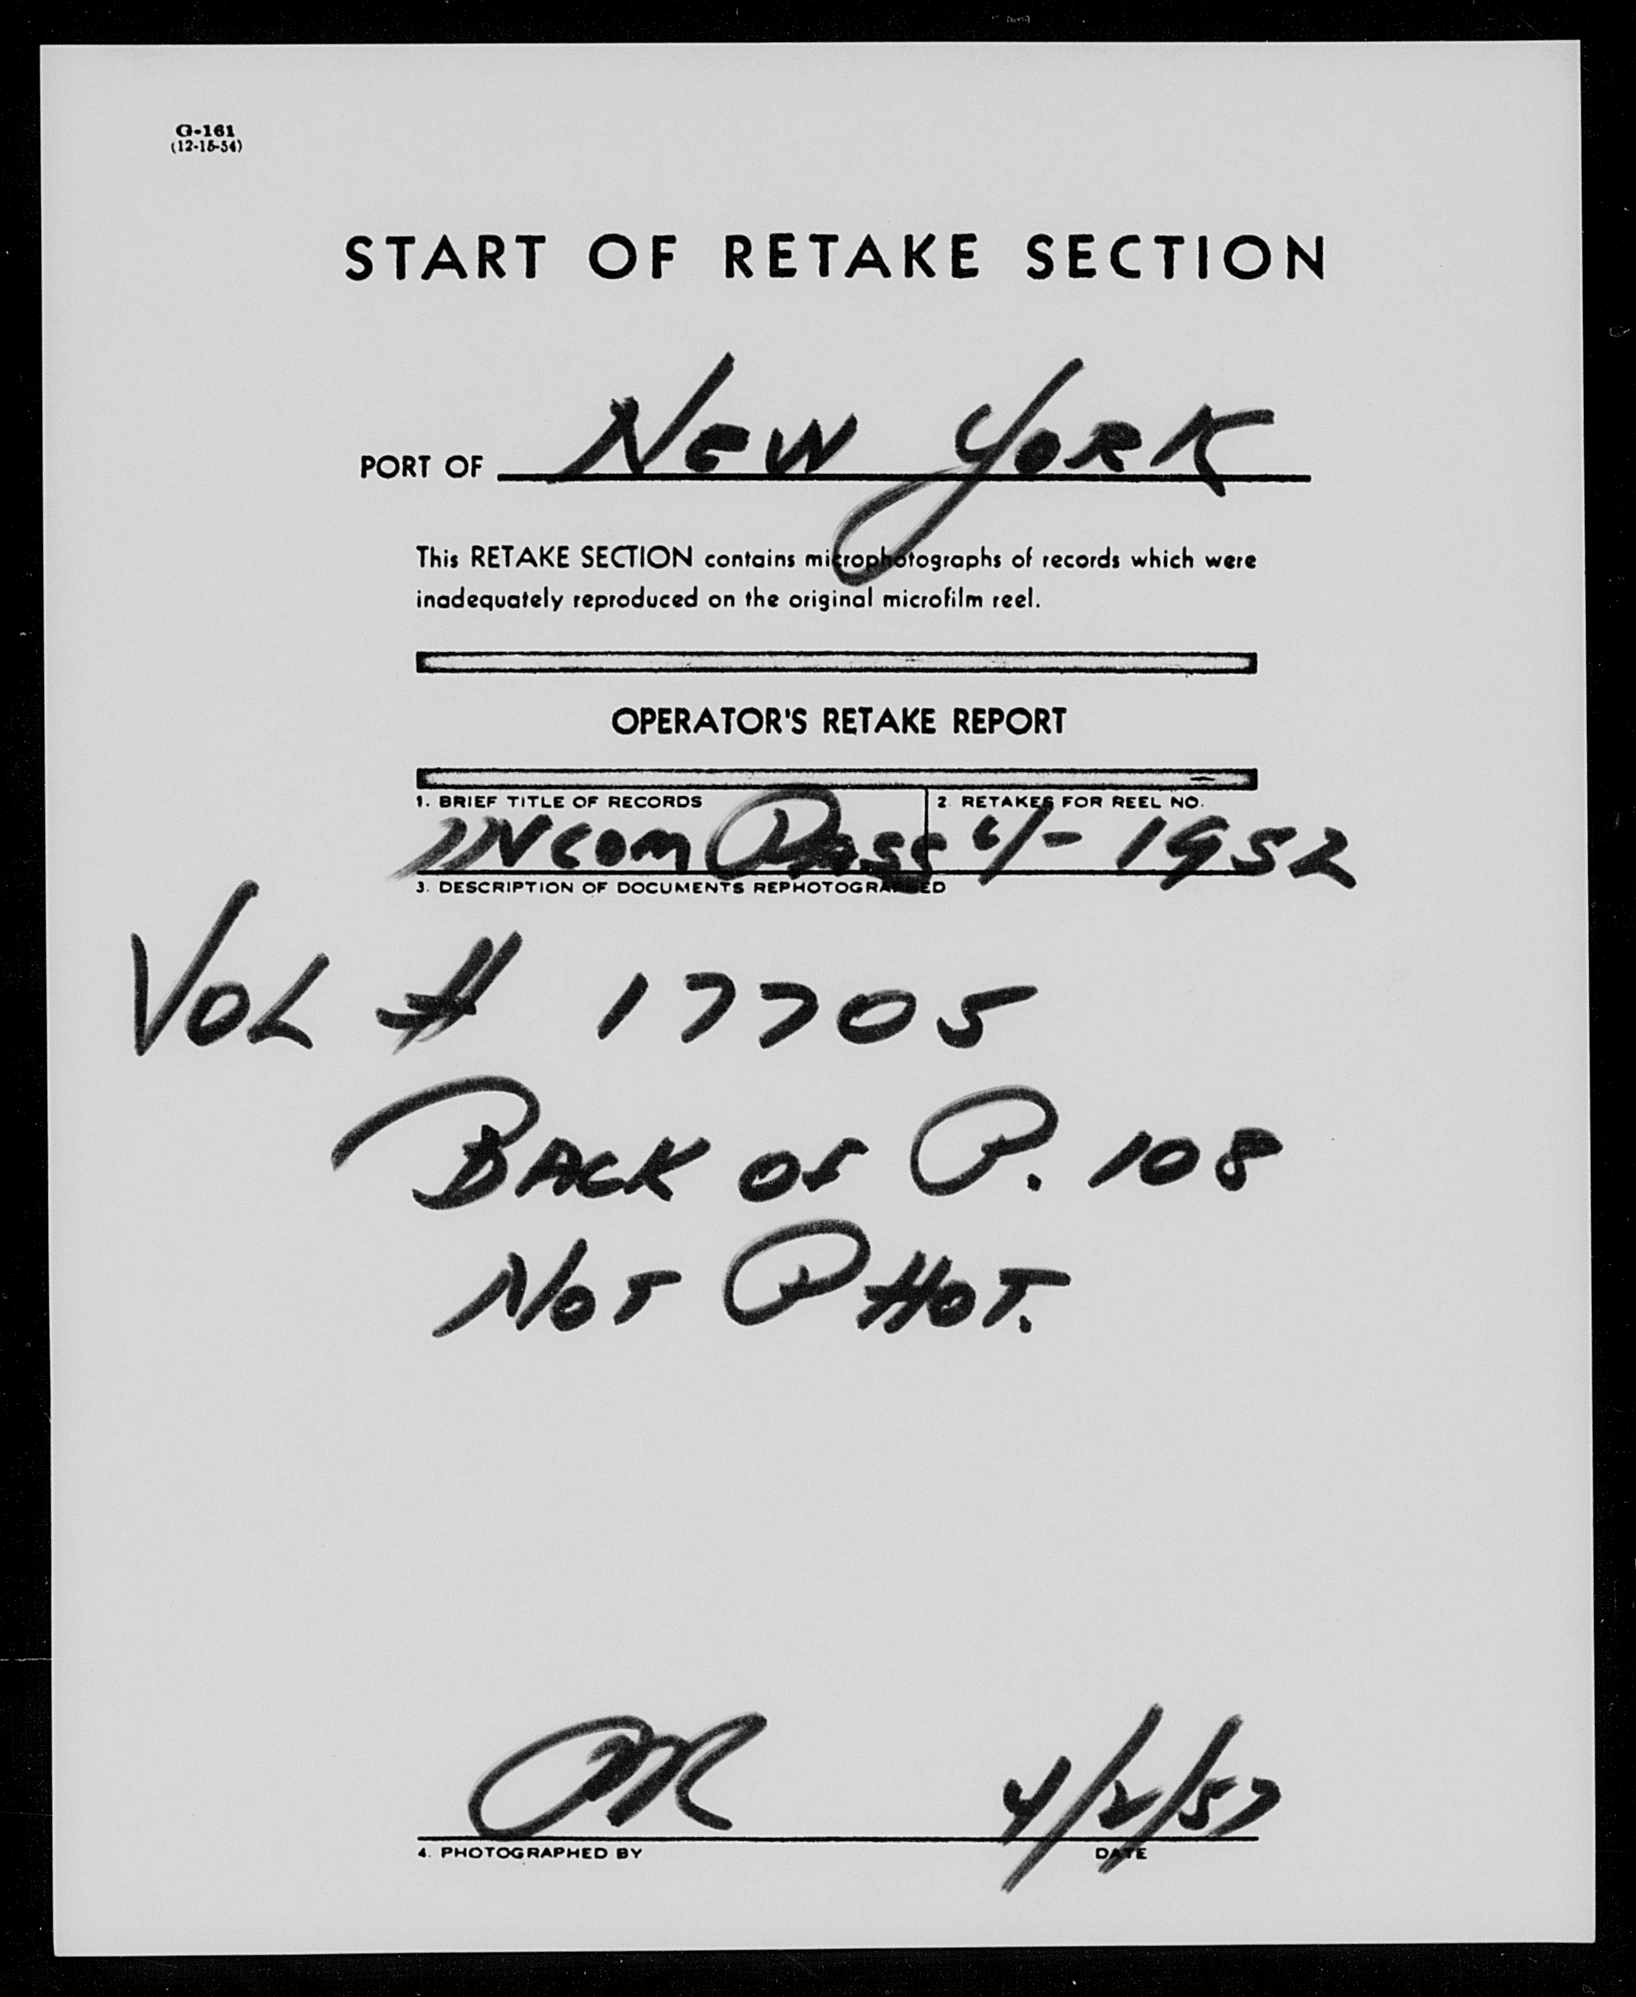 G-161
(12-15-54)
START OF RETAKE SECTION
PORT OF New York
This RETAKE SECTION contains microphotographs of records which were
inadequately reproduced on the original microfilm reel.
OPERATOR'S RETAKE REPORT
1. BRIEF TITLE OF RECORDS 2. RETAKES FOR REEL NO.
INcom Pass 4/- 1952
3. DESCRIPTION OF DOCUMENTS REPHOTOGRAPHED
VOL # 17705
BACK OF P. 108
NOT PHOT.
4/2/57
4. PHOTOGRAPHED BY DATE